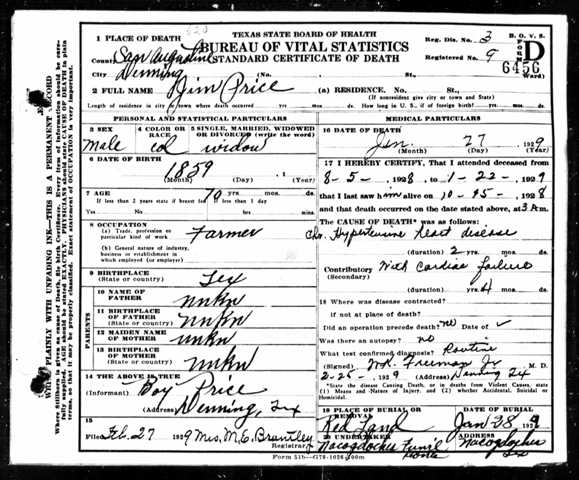 TEXAS STATE BOARD OF HEALTH
BUREAU OF VITAL STATISTICS
STANDARD CERTIFICATE OF DEATH
Reg. Dis. No. 3
Registered No. 9
B. O. V. S.
FORM D
6456
1 PLACE OF DEATH
County San Augustine
City Denning (No. St., Ward)
2 FULL NAME Jim Price (a) RESIDENCE, No. St.,
(If nonresident give city or town and State)
Length of residence in city or town where death occurred yrs. mos. ds. How long in U. S., if of foreign birth? yrs. mos. ds.
PERSONAL AND STATISTICAL PARTICULARS
3 SEX 4 COLOR OR RACE 5 SINGLE, MARRIED, WIDOWED OR DIVORCED (write the word)
male col widow
6 DATE OF BIRTH
1859
(Month) (Day) (Year)
7 AGE 70 yrs. mos. ds.
If less than 2 years state if breast fed If less than 1 day
Yes No hrs. min.
8 OCCUPATION
(a) Trade, profession or particular kind of work Farmer
(b) General nature of industry, business or establishment in which employed (or employer)
9 BIRTHPLACE
(State or country) Tex
PARENTS
10 NAME OF FATHER unkn
11 BIRTHPLACE OF FATHER
(State or country) unkn
12 MAIDEN NAME OF MOTHER unkn
13 BIRTHPLACE OF MOTHER
(State or country) unkn
14 THE ABOVE IS TRUE
(Informant) Boy Price
(Address) Denning, Tex
15
Filed Feb. 27 1929 Mrs. M. E. Brantley
Registrar
MEDICAL PARTICULARS
16 DATE OF DEATH
Jan. 27 1929
(Month) (Day) (Year)
17 I HEREBY CERTIFY, That I attended deceased from
8-5-, 1928, to 1-22-, 1929
that I last saw him alive on 10-15-, 1928
and that death occurred on the date stated above, at 3 A m.
The CAUSE OF DEATH* was as follows:
Chr. Hypertensive Heart disease
(duration) 2 yrs. mos. ds.
Contributory (Secondary) With Cardiac failure
(duration) yrs. 4 mos. ds.
18 Where was disease contracted?
if not at place of death?
Did an operation precede death? no Date of
Was there an autopsy? no
What test confirmed diagnosis? Routine
(Signed) Freeman Jr M. D.
2-25-, 1929 Denning Tex
*State the disease Causing Death, or in deaths from Violent Causes, state (1) Means and Nature of Injury, and (2) whether Accidental, Suicidal or Homicidal.
19 PLACE OF BURIAL OR REMOVAL DATE OF BURIAL
Red Land Jan 28 1929
20 UNDERTAKER ADDRESS
Nacogdoches Fun'l Home Nacogdoches Tex
Form 51b—G79-1028-100m